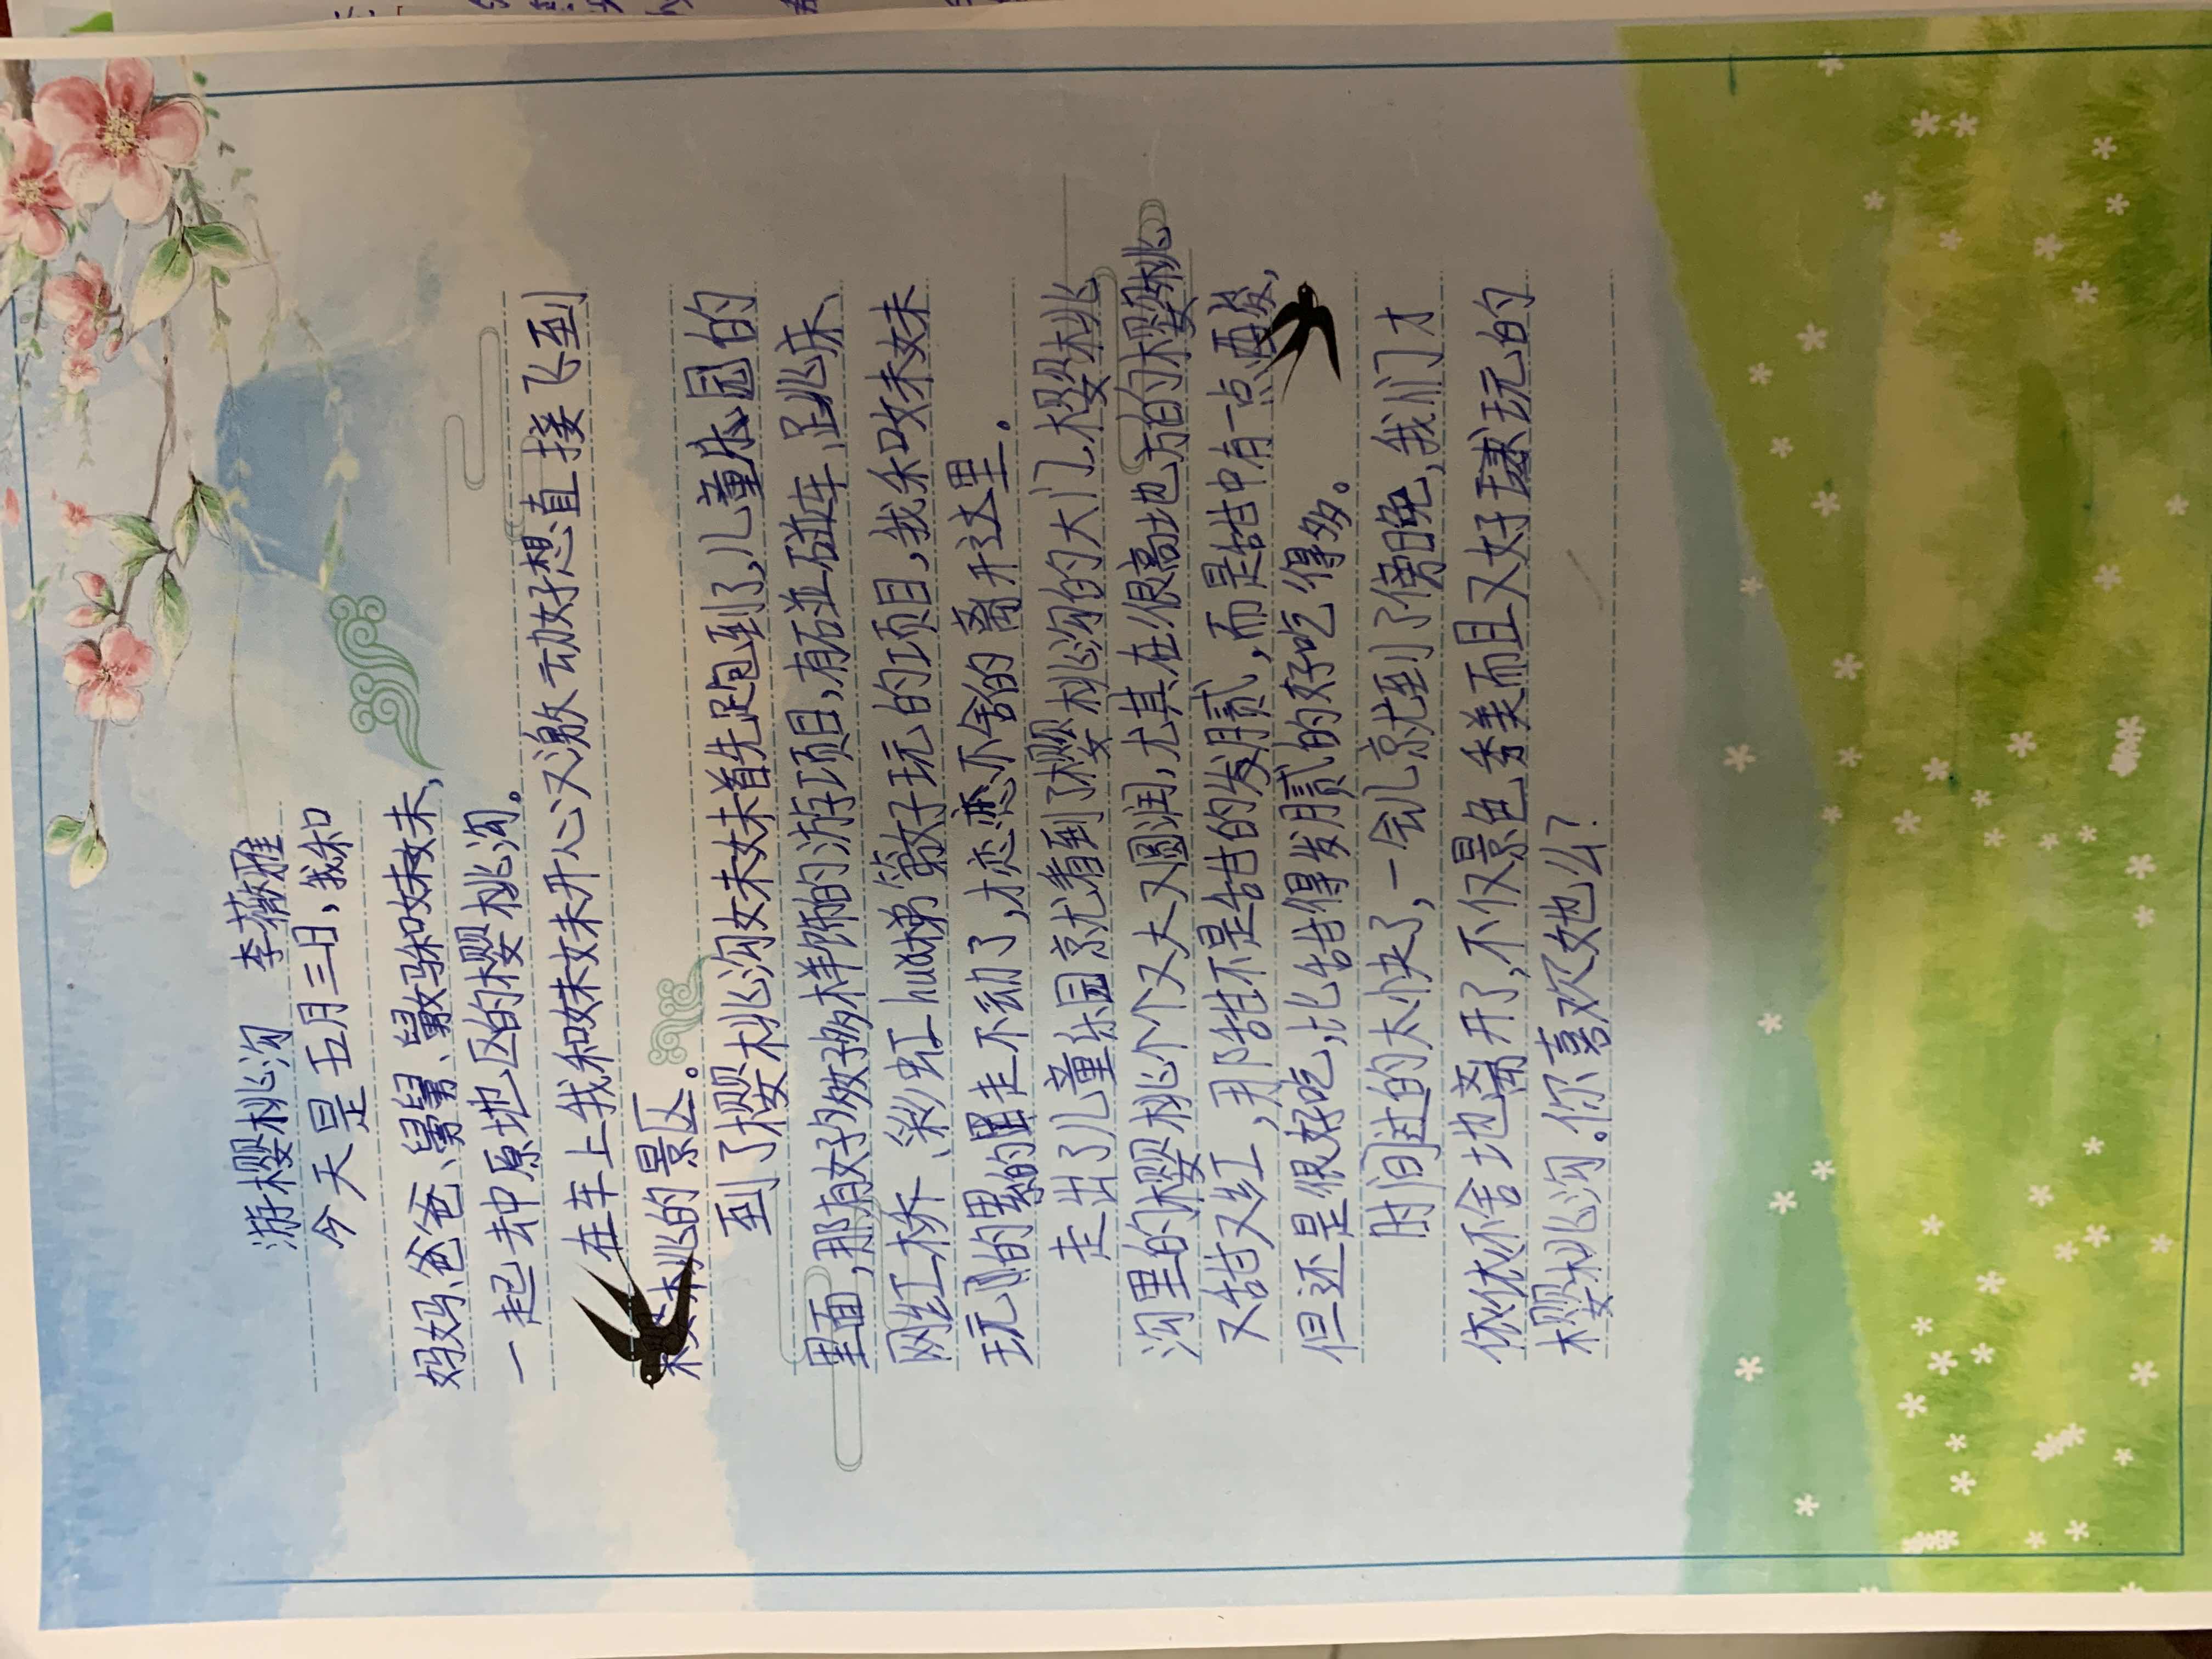 游樱桃沟 李薇雅
今天是五月三日,我和
妈妈、爸爸、舅舅、舅妈和妹妹,
一起去中原地区的樱桃沟。
在车上我和妹妹开心又激动好想直接飞到
樱桃的景区。
到了樱桃沟妹妹首先跑到了儿童乐园的
里面,那有好多好多样饰的游项目,有碰碰车、跳床、
网红桥、彩虹hua梯等好玩的项目,我和妹妹
玩的累的里走不动了,才恋恋不舍的离开这里.
走出了儿童乐园就看到了樱桃沟的大门,樱桃
沟里的樱桃个个又大又圆润,尤其在很高地方的樱桃
又甜又红,那甜不是甜的发腻,而是甜中有一点酸,
但还是很好吃,比甜得发腻的好吃得多。
时间过的太快了,一会儿就到了傍晚,我们才
依依不舍地离开了,不仅景色秀美而且又好玩的
樱桃沟.你喜欢她么?